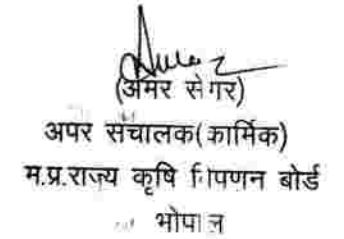 (अमर सेंगर)
अपर संचालक(कार्मिक)
म.प्र.राज्य कृषि विपणन बोर्ड
भोपाल